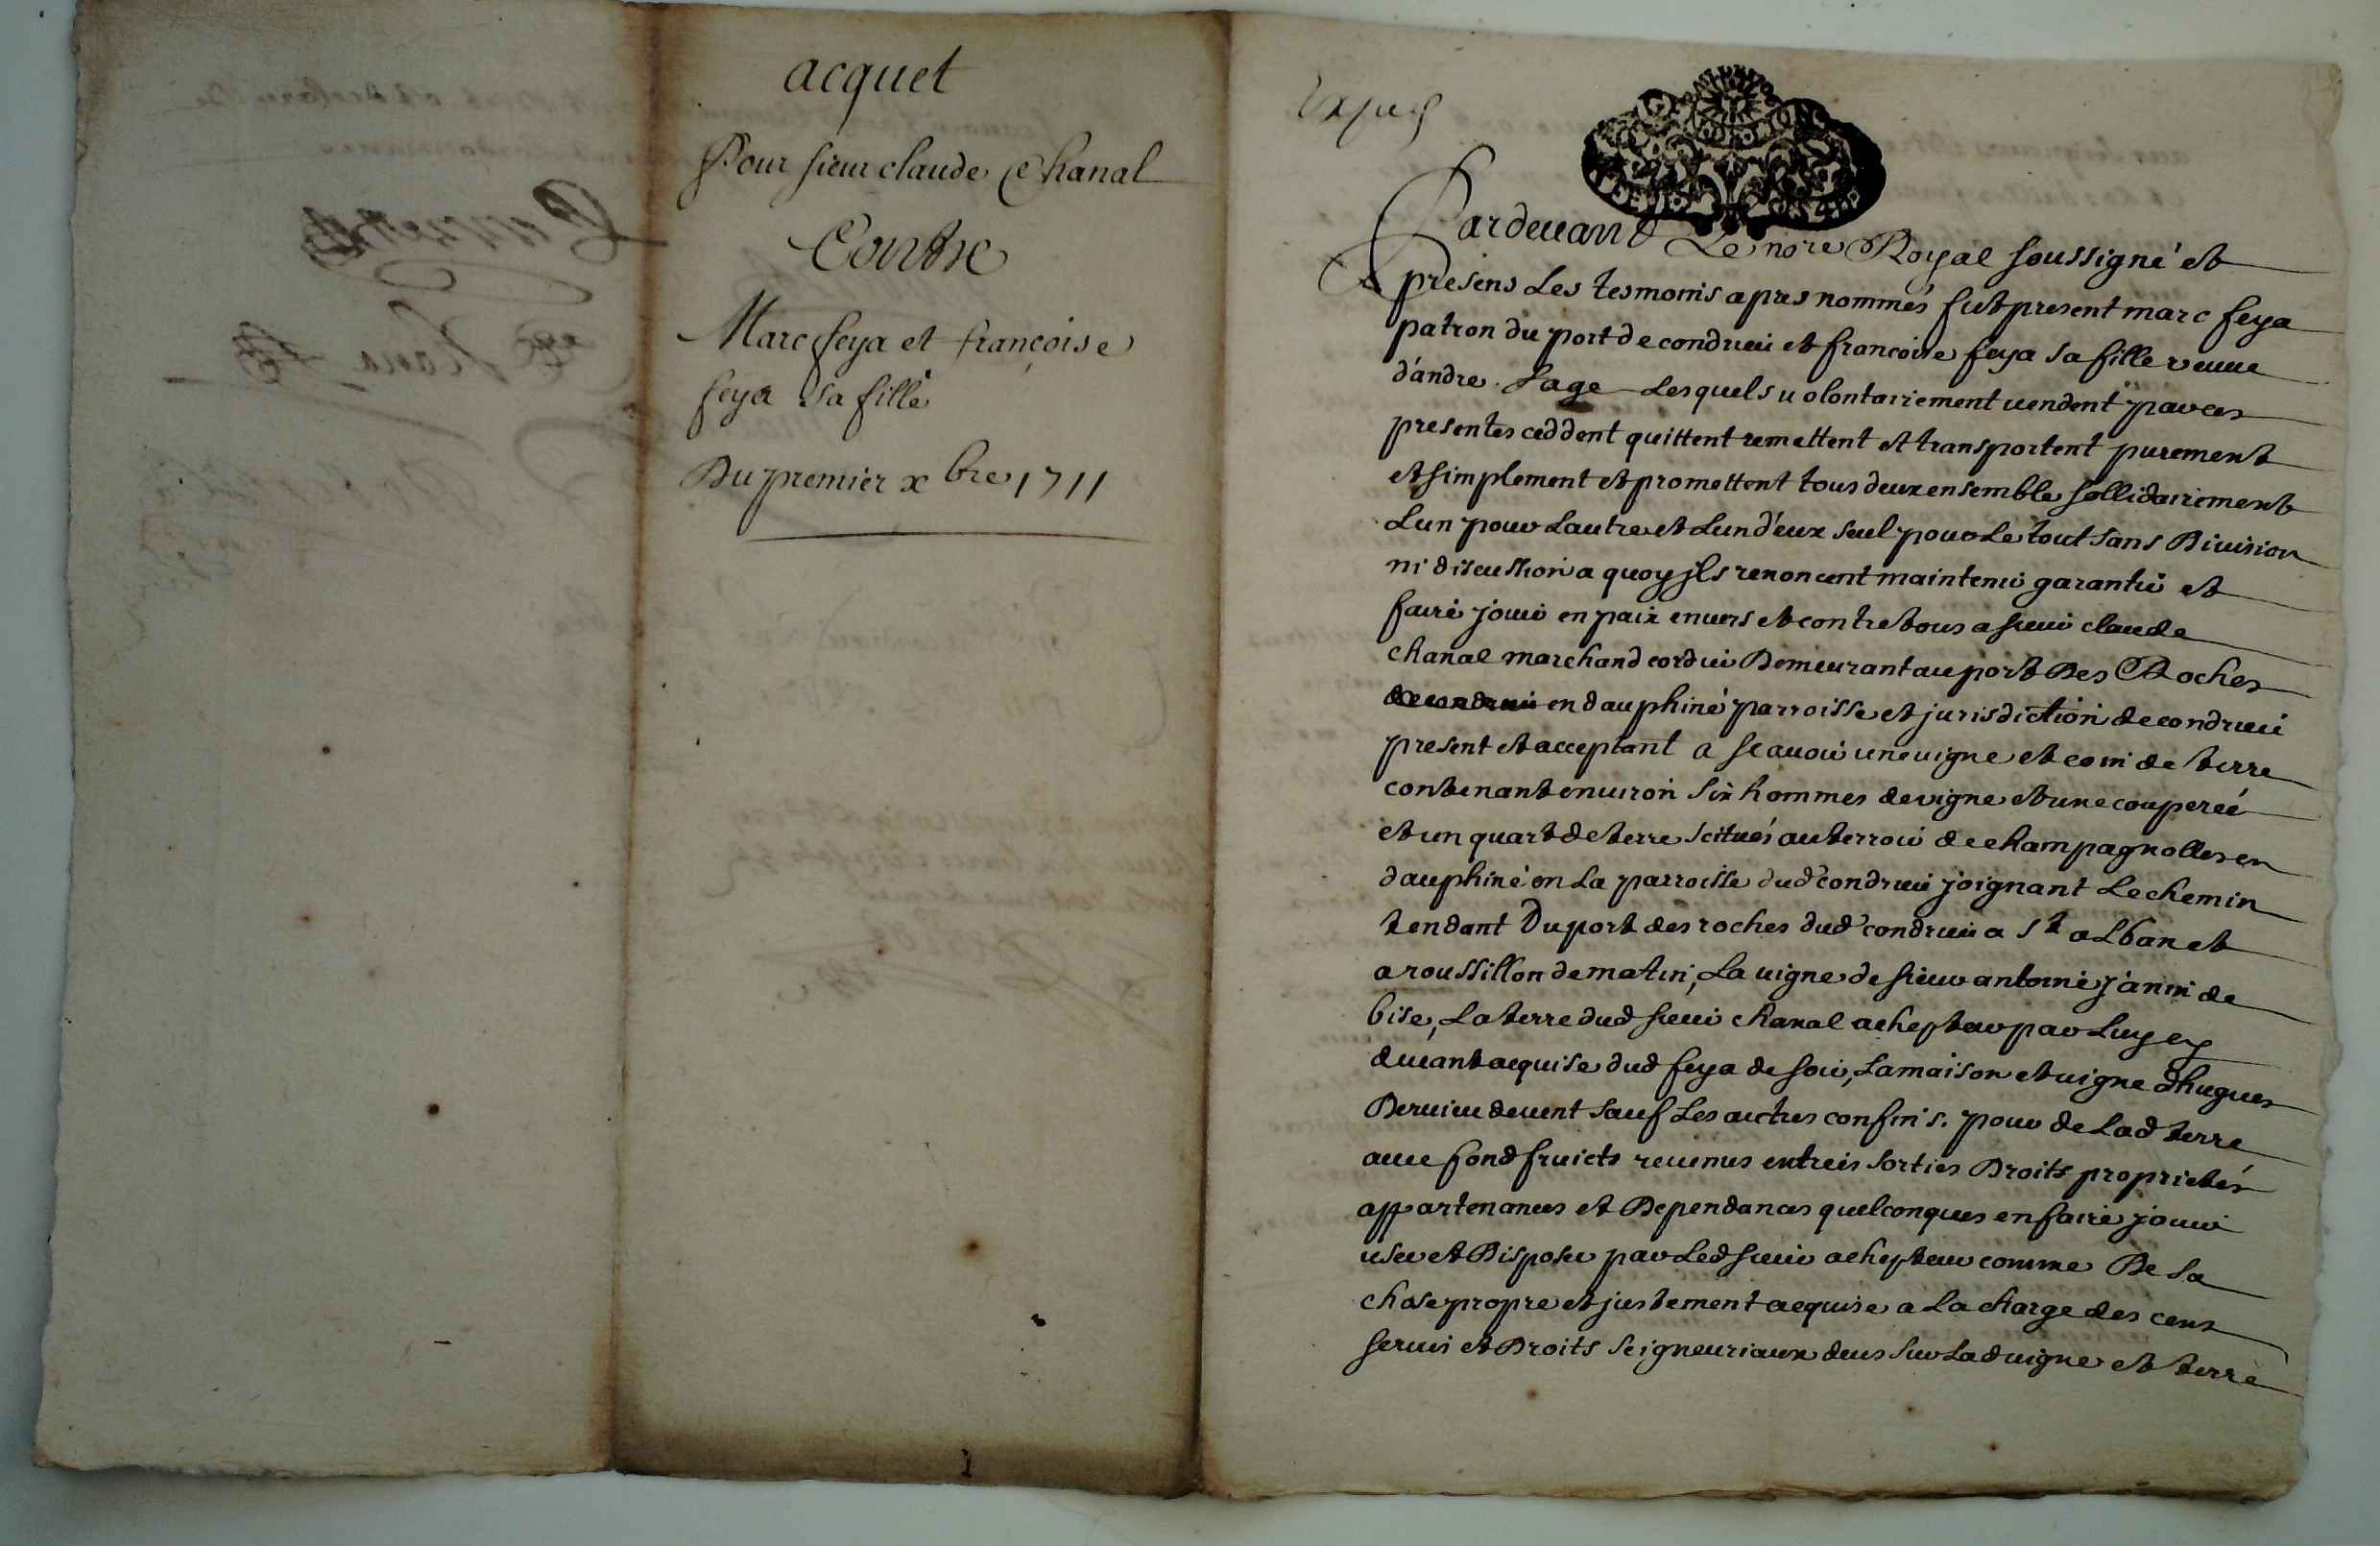 acquet
Pour sieur claude Chanal
Contre
Marc feya et françoise
feya sa fille
Du premier xbre 1711
Pardevant Le nore Royal soussigné et
presens Les tesmoins apres nommés fut present marc feya
patron du port de condrieu et francoise feya sa fille veuue
d'andre sage Lesquels uolontairement uendent par ces
presentes ceddent quittent remettent et transportent purement
et simplement et promettent tous deux ensemble sollidairement
Lun pour Lautre et Lun d'eux seul pour Le tout sans Diuision
ni discussion a quoy jls renoncent maintenir garantir et
faire jouir en paix enuers et contre tous a sieur claude
chanal marchand cordier Demeurant au port Des Roches
en dauphiné parroisse et jurisdiction de condrieu
present et acceptant a scauoir une uigne et coin de terre
contenant enuiron six hommes de vigne et une couperée
et un quart de terre scitués au terroir de champagnolles en
dauphiné en La parroisse dud condrieu joignant Le chemin
tendant Du port des roches dud condrieu a st alban et
a roussillon de matin, La uigne de sieur antoine janin de
bise, La terre dud sieur chanal achepteur par Luy cy
deuant acquise dud feya de soir, La maison et uigne d'hugues
Deruieu de uent sauf Les autres confins. pour de Lad terre
auec fond fruicts reuenus entrees sorties Droits proprietés
appartenances et Dependances quelconques en faire jouir
user et Disposer par Led sieur achepteur comme De sa
chose propre et justement acquise a La charge des cens
seruis et Droits seigneuriaux deus sur Lad uigne et terre